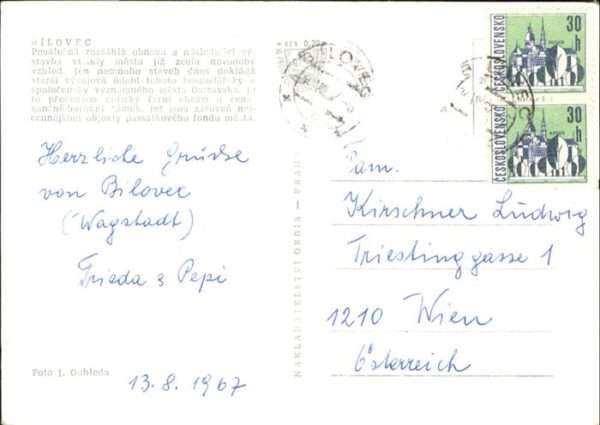 BÍLOVEC
Poválečná rozsáhlá obnova a následující vý-
stavba vtiskly městu již zcela novodobý
vzhled. Jen nemnoho staveb dnes dokládá
starší výtvarné údobí tohoto hospodářsky a
společensky významného města Ostravska. Je
to především zdejší farní chrám a
renesanční zámek, jež jsou zároveň nej-
cennějšími objekty památkového fondu města.
Herzliche Grüsse
von Bílovec
(Wagstadt)
Frieda & Pepi
Foto J. Duhleda
13.8.1967
NAKLADATELSTVÍ ORBIS — PRAHA
BÍLOVEC
ČESKOSLOVENSKO
30
h
ČESKOSLOVENSKO
30
h
Fam.
Kirschner Ludwig
Triestinggasse 1
1210 Wien
Österreich